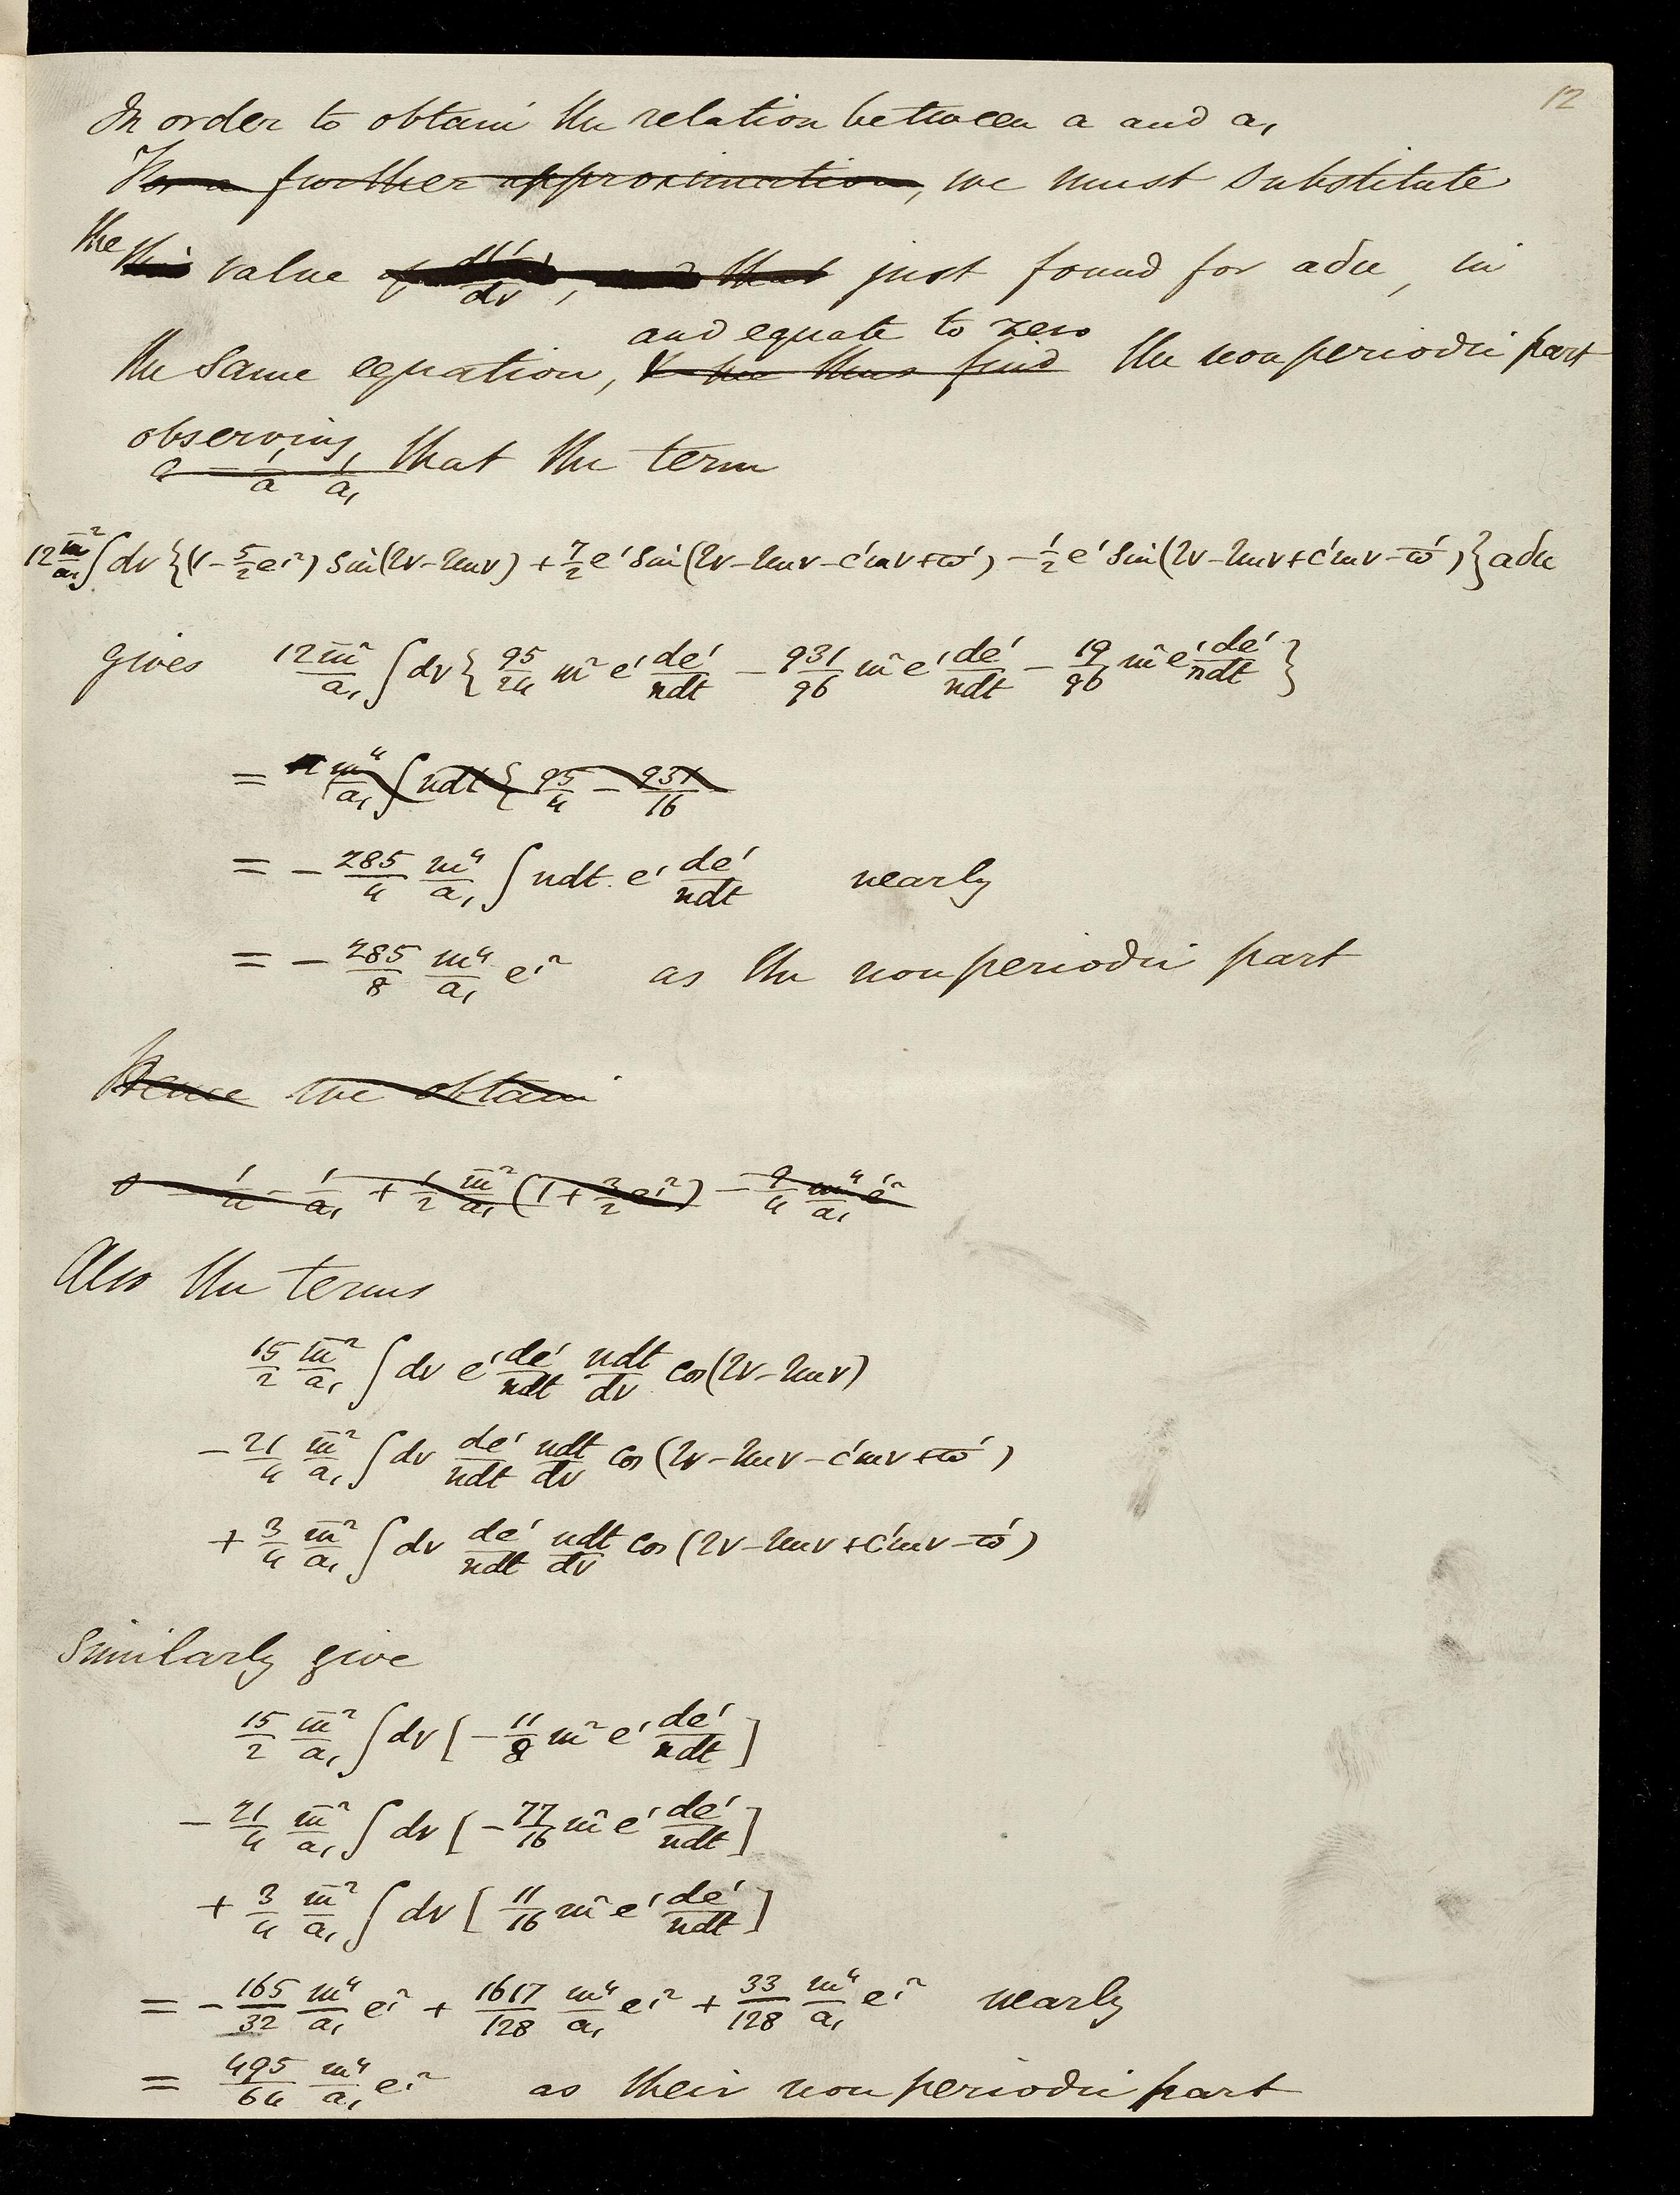 12
In order to obtain the relation between a and a₁
For a further approximation, we must substitute
the this value of dv, that just found for aδu, in
and equate to zero
the same equation, & we thus find the non periodic part
observing, that the term
a 1/a 1/a₁
12 m̅²/a₁ ∫dv {(1 − 5/2 e'²) sin(2v−2mv) + 7/2 e' sin(2v−2mv−c'mv+ϖ') − 1/2 e' sin(2v−2mv+c'mv−ϖ')} aδu
gives 12 m̅²/a₁ ∫dv {95/24 m² e' de'/ndt − 931/96 m² e' de'/ndt − 19/96 m² e' de'/ndt}
= 12 m⁴/a₁ ∫ndt {95/4 − 931/16
= − 285/4 m⁴/a₁ ∫ndt. e' de'/ndt nearly
= − 285/8 m⁴/a₁ e'² as the non periodic part
Hence we obtain
0 = 1/a − 1/a₁ + 1/2 m̅²/a₁ (1 + 3/2 e'²) − 9/4 m⁴/a₁ e'²
Also the terms
15/2 m̅²/a₁ ∫dv e' de'/ndt ndt/dv cos(2v−2mv)
− 21/4 m̅²/a₁ ∫dv de'/ndt ndt/dv cos(2v−2mv−c'mv+ϖ')
+ 3/4 m̅²/a₁ ∫dv de'/ndt ndt/dv cos(2v−2mv+c'mv−ϖ')
Similarly give
15/2 m̅²/a₁ ∫dv [− 11/8 m² e' de'/ndt]
− 21/4 m̅²/a₁ ∫dv [− 77/16 m² e' de'/ndt]
+ 3/4 m̅²/a₁ ∫dv [11/16 m² e' de'/ndt]
= − 165/32 m⁴/a₁ e'² + 1617/128 m⁴/a₁ e'² + 33/128 m⁴/a₁ e'² nearly
= 495/64 m⁴/a₁ e'² as their non periodic part